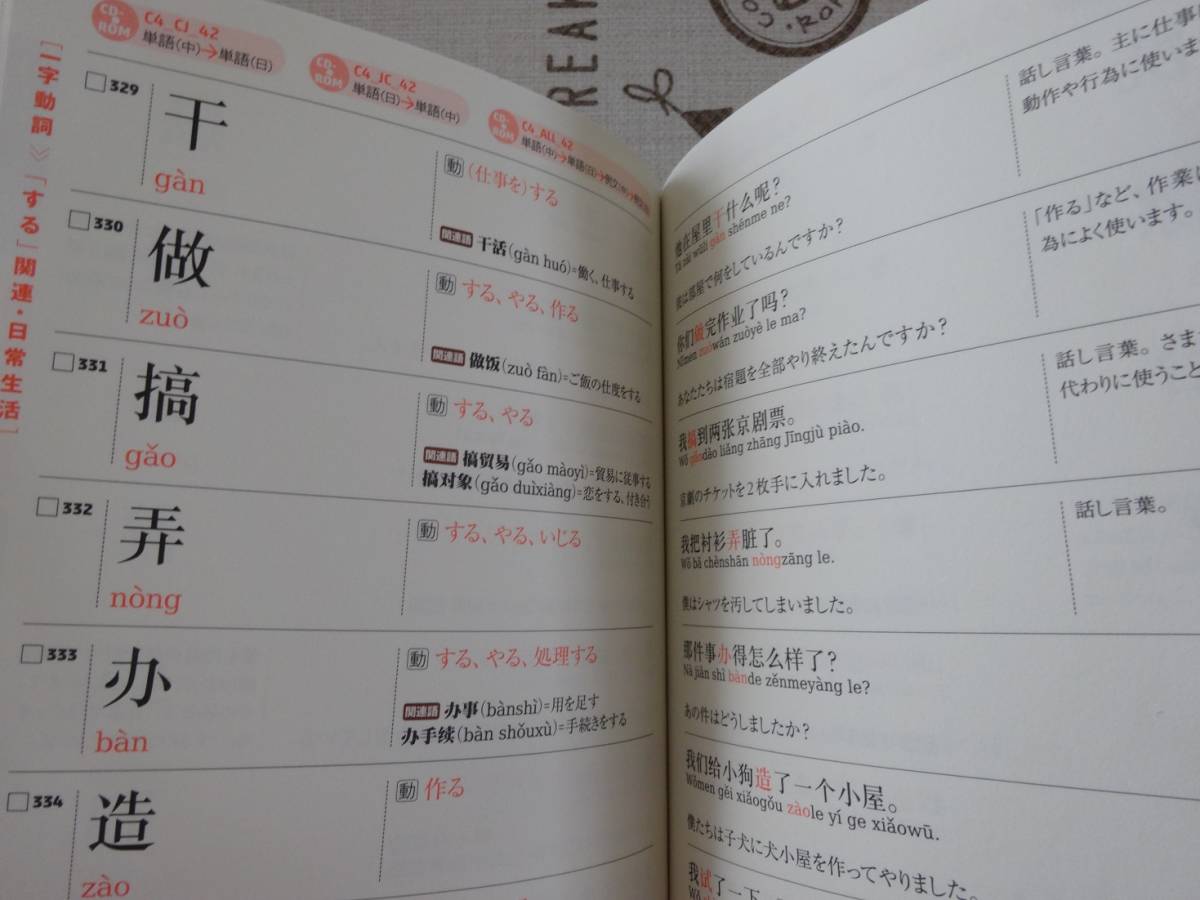 CD-ROM
C4_CJ_42
単語(中)→単語(日)
CD-ROM
C4_JC_42
単語(日)→単語(中)
CD-ROM
C4_ALL_42
単語(中)→単語(日)→例文(中)→
[一字動詞》「する」関連・日常生活]
329
干
gàn
動 (仕事を)する
関連語 干活(gàn huó)=働く、仕事する
330
做
zuò
動 する、やる、作る
関連語 做饭(zuò fàn)=ご飯の仕度をする
331
搞
gǎo
動 する、やる
関連語 搞贸易(gǎo màoyì)=貿易に従事する
搞对象(gǎo duìxiàng)=恋をする、付き合う
332
弄
nòng
動 する、やる、いじる
333
办
bàn
動 する、やる、処理する
関連語 办事(bànshì)=用を足す
办手续(bàn shǒuxù)=手続きをする
334
造
zào
動 作る
REA
他在屋里干什么呢?
Tā zài wūli gàn shénme ne?
彼は部屋で何をしているんですか?
話し言葉。主に仕事
動作や行為に使いま
你们做完作业了吗?
Nǐmen zuòwán zuòyè le ma?
あなたたちは宿題を全部やり終えたんですか?
「作る」など、作業
為によく使います。
我搞到两张京剧票。
Wǒ gǎodào liǎng zhāng Jīngjù piào.
京劇のチケットを2枚手に入れました。
話し言葉。さま
代わりに使うこと
我把衬衫弄脏了。
Wǒ bǎ chènshān nòngzāng le.
僕はシャツを汚してしまいました。
話し言葉。
那件事办得怎么样了?
Nà jiàn shì bànde zěnmeyàng le?
あの件はどうしましたか?
我们给小狗造了一个小屋。
Wǒmen gěi xiǎogǒu zàole yí ge xiǎowū.
僕たちは子犬に犬小屋を作ってやりました。
我试了一下